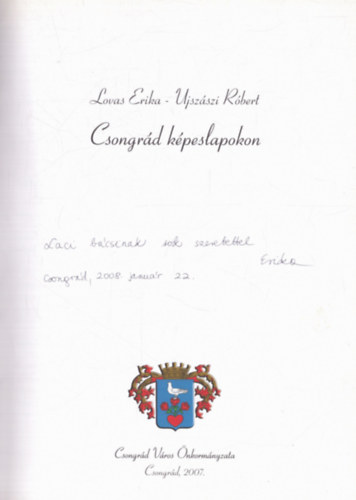 Lovas Erika - Ujszászi Róbert
Csongrád képeslapokon
Laci bácsinak sok szeretettel
Erika
Csongrád, 2008 január 22.
Csongrád Város Önkormányzata
Csongrád, 2007.